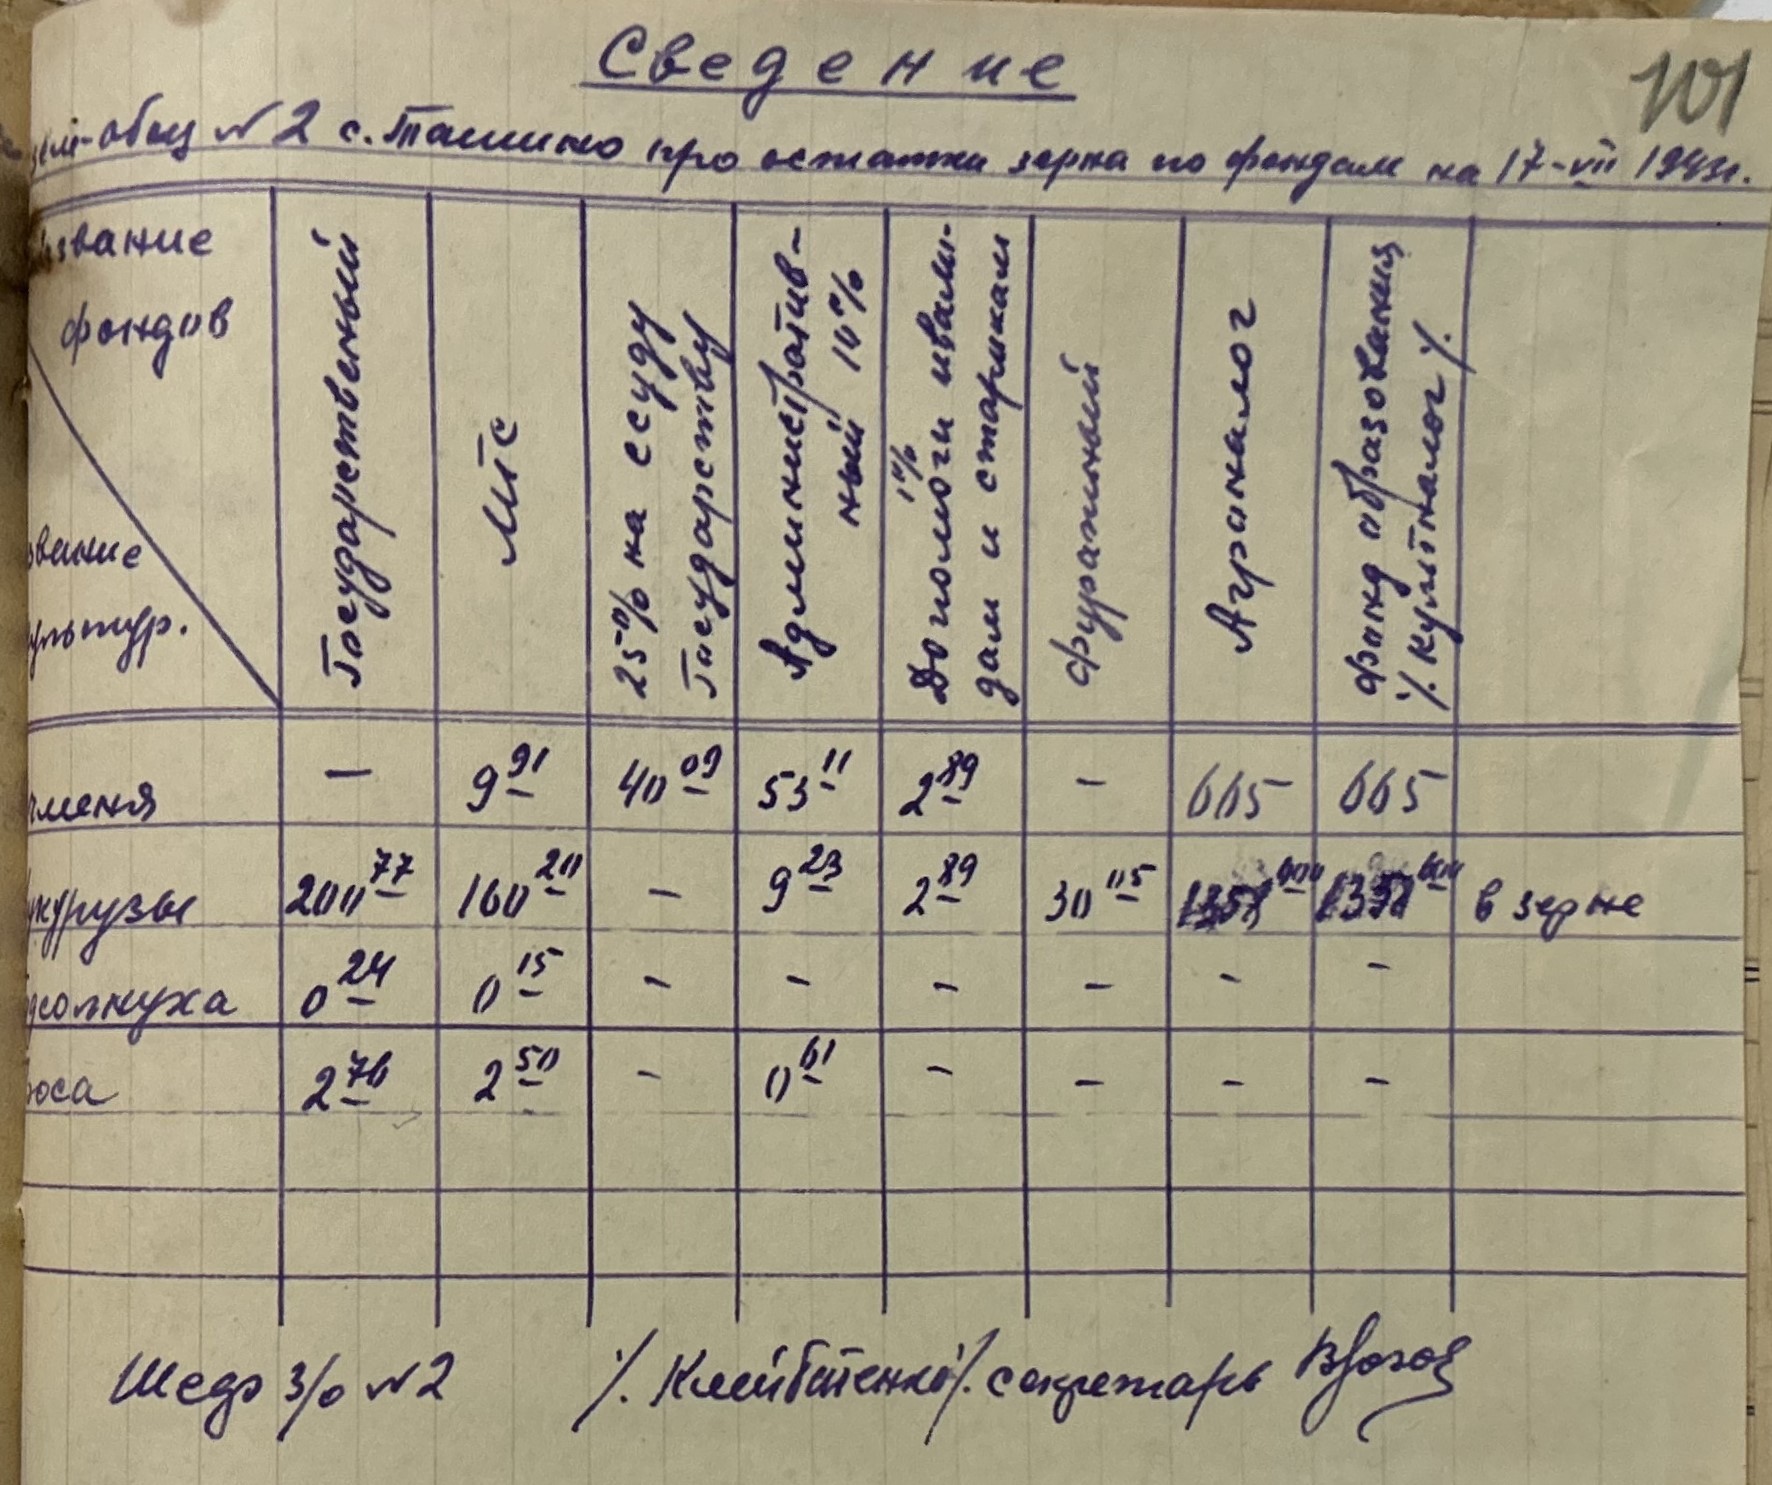 Сведение
101
зем-общ №2 с. Ташино про остатки зерна по фондам на 17-VII 1943г.
звание
фондов
звание
ультур.
Государственный
МТС
25% на ссуду
Государству
Административ-
ный 10%
Допомоги инвали-
1%
дам и старикам
Фуражный
Агроналог
Фонд образования
/.культналог/.
чменя — 9 91 40 09 53 11 2 89 — 665 665
укурузы 200 77 160 20 — 9 23 2 89 30 05 в зерне
дсолнуха 0 24 0 15 - - - - - -
оса 2 76 2 50 - 0 61 - - - -
Шеф з/о №2 секретарь